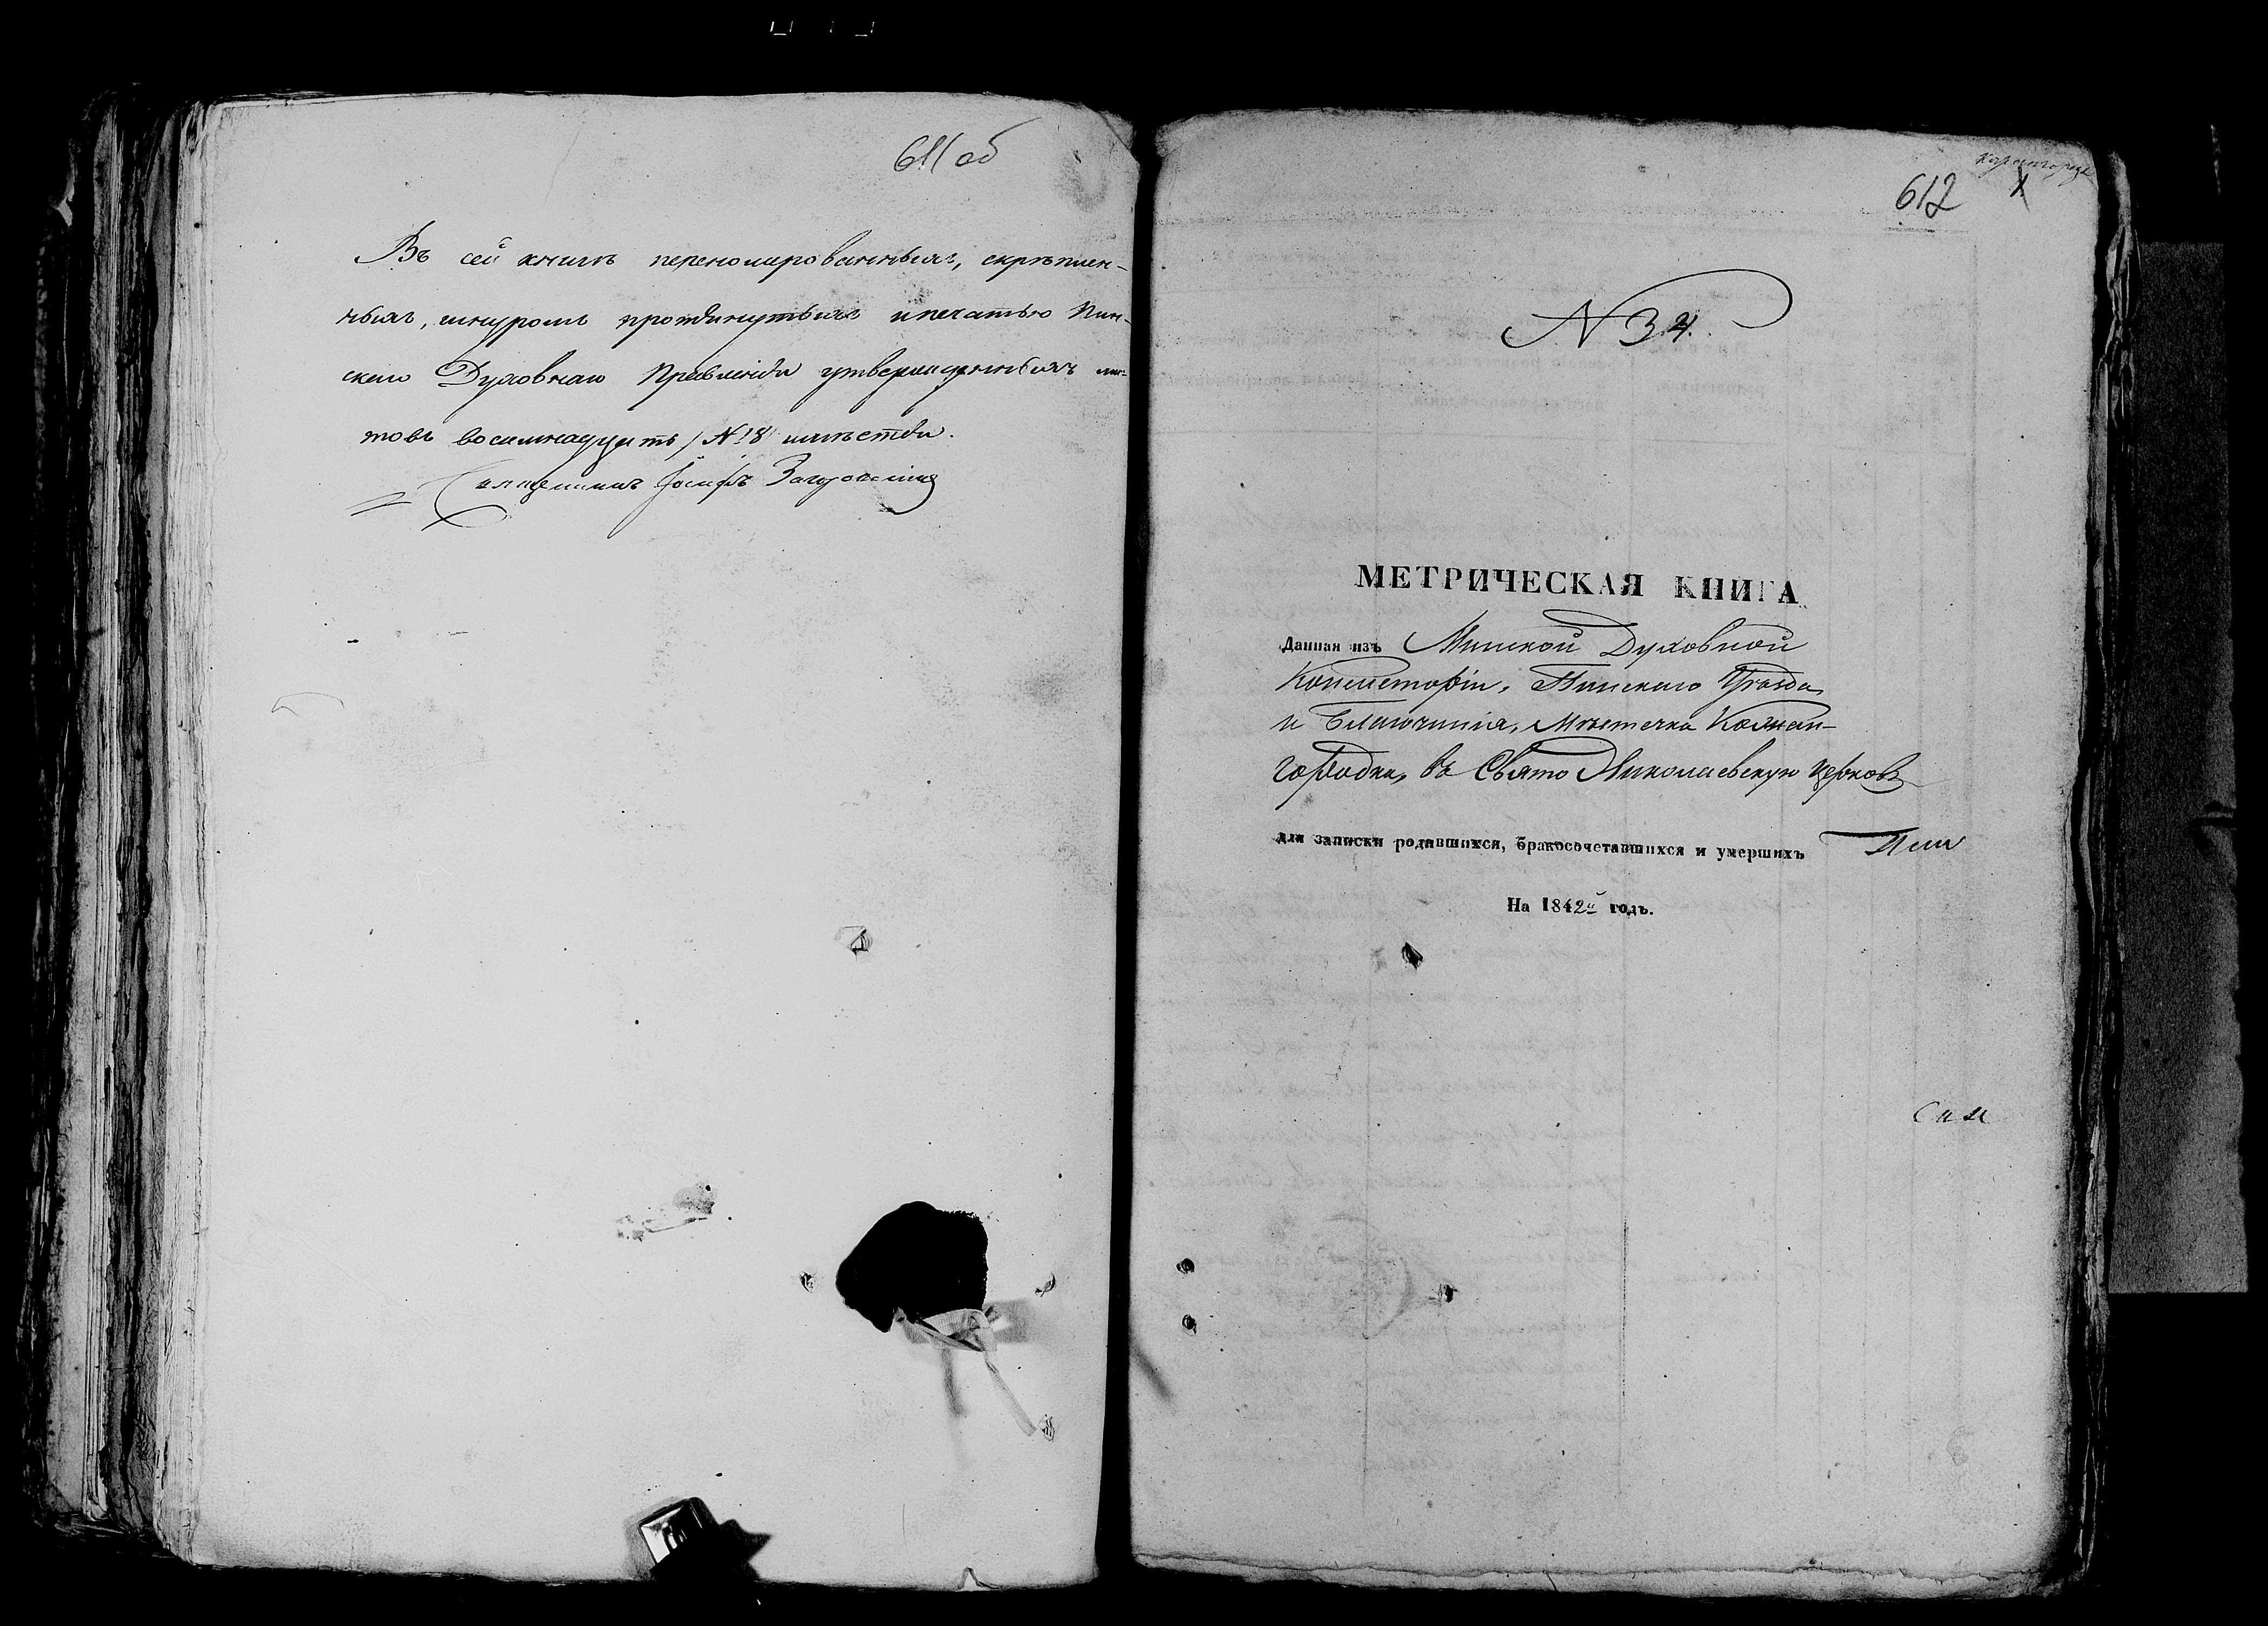 611 об
Въ сей книгѣ переномерованныхъ, скрѣплен-
ныхъ, шнуромъ протянутыхъ и печатью Пин-
скаго Духовнаго Правленія утвержденныхъ лис-
товъ восемнадцать / №18 имѣется.
Священникъ Іосифъ
612 1
N 34.
МЕТРИЧЕСКАЯ КНИГА
Данная изъ Минской Духовной
Консисторіи, Пинскаго Уѣзда
и Благочинія, Мѣстечка Кожан-
городка, въ Свято Николаевскую церковь
для записки родившихся, бракосочетавшихся и умершихъ
На 1842й годъ.